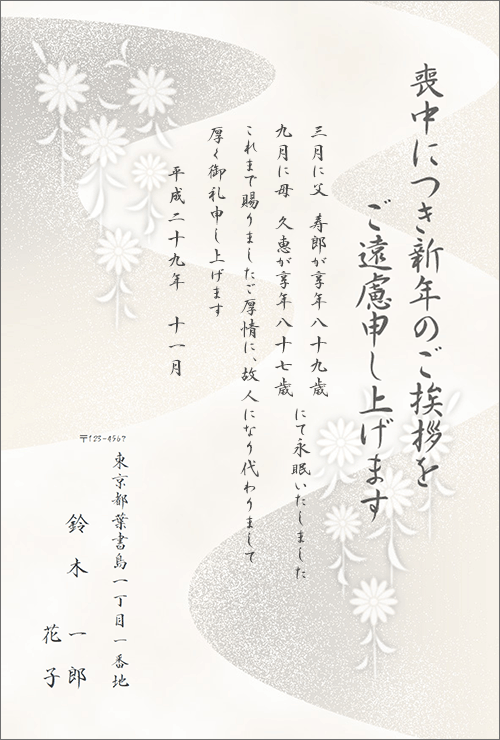 喪中につき新年のご挨拶を
ご遠慮申し上げます
三月に父 寿郎が享年八十九歳
九月に母 久恵が享年八十七歳
にて永眠いたしました
これまで賜りましたご厚情に、故人になり代わりまして
厚く御礼申し上げます
平成二十九年 十一月
〒123-4567
東京都葉書島一丁目一番地
鈴木 一郎
花子